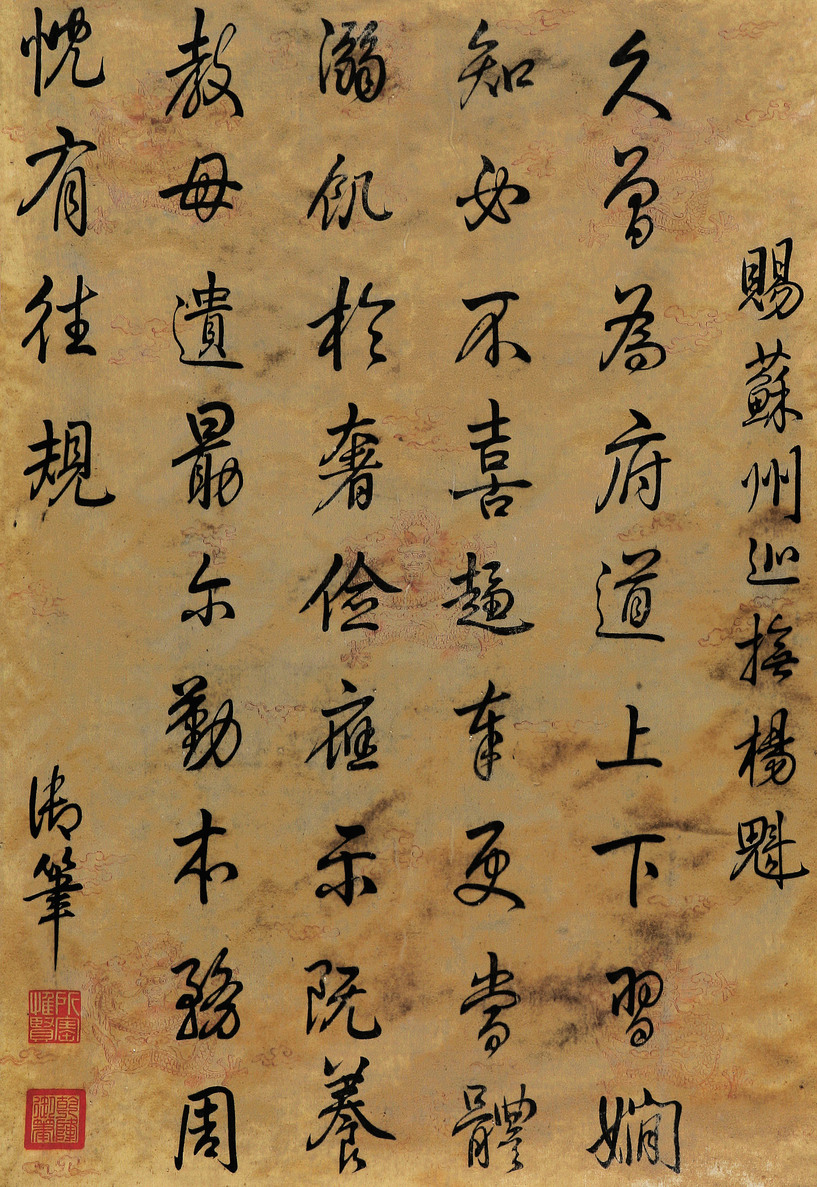 賜蘇州巡撫楊魁
久曾為府道上下習嫻
知必不喜趨奉更當體
溺飢於奢儉應示既養
教毋遺勗尔勤本務周
忱有往規
御筆
所寶惟賢
乾隆御筆